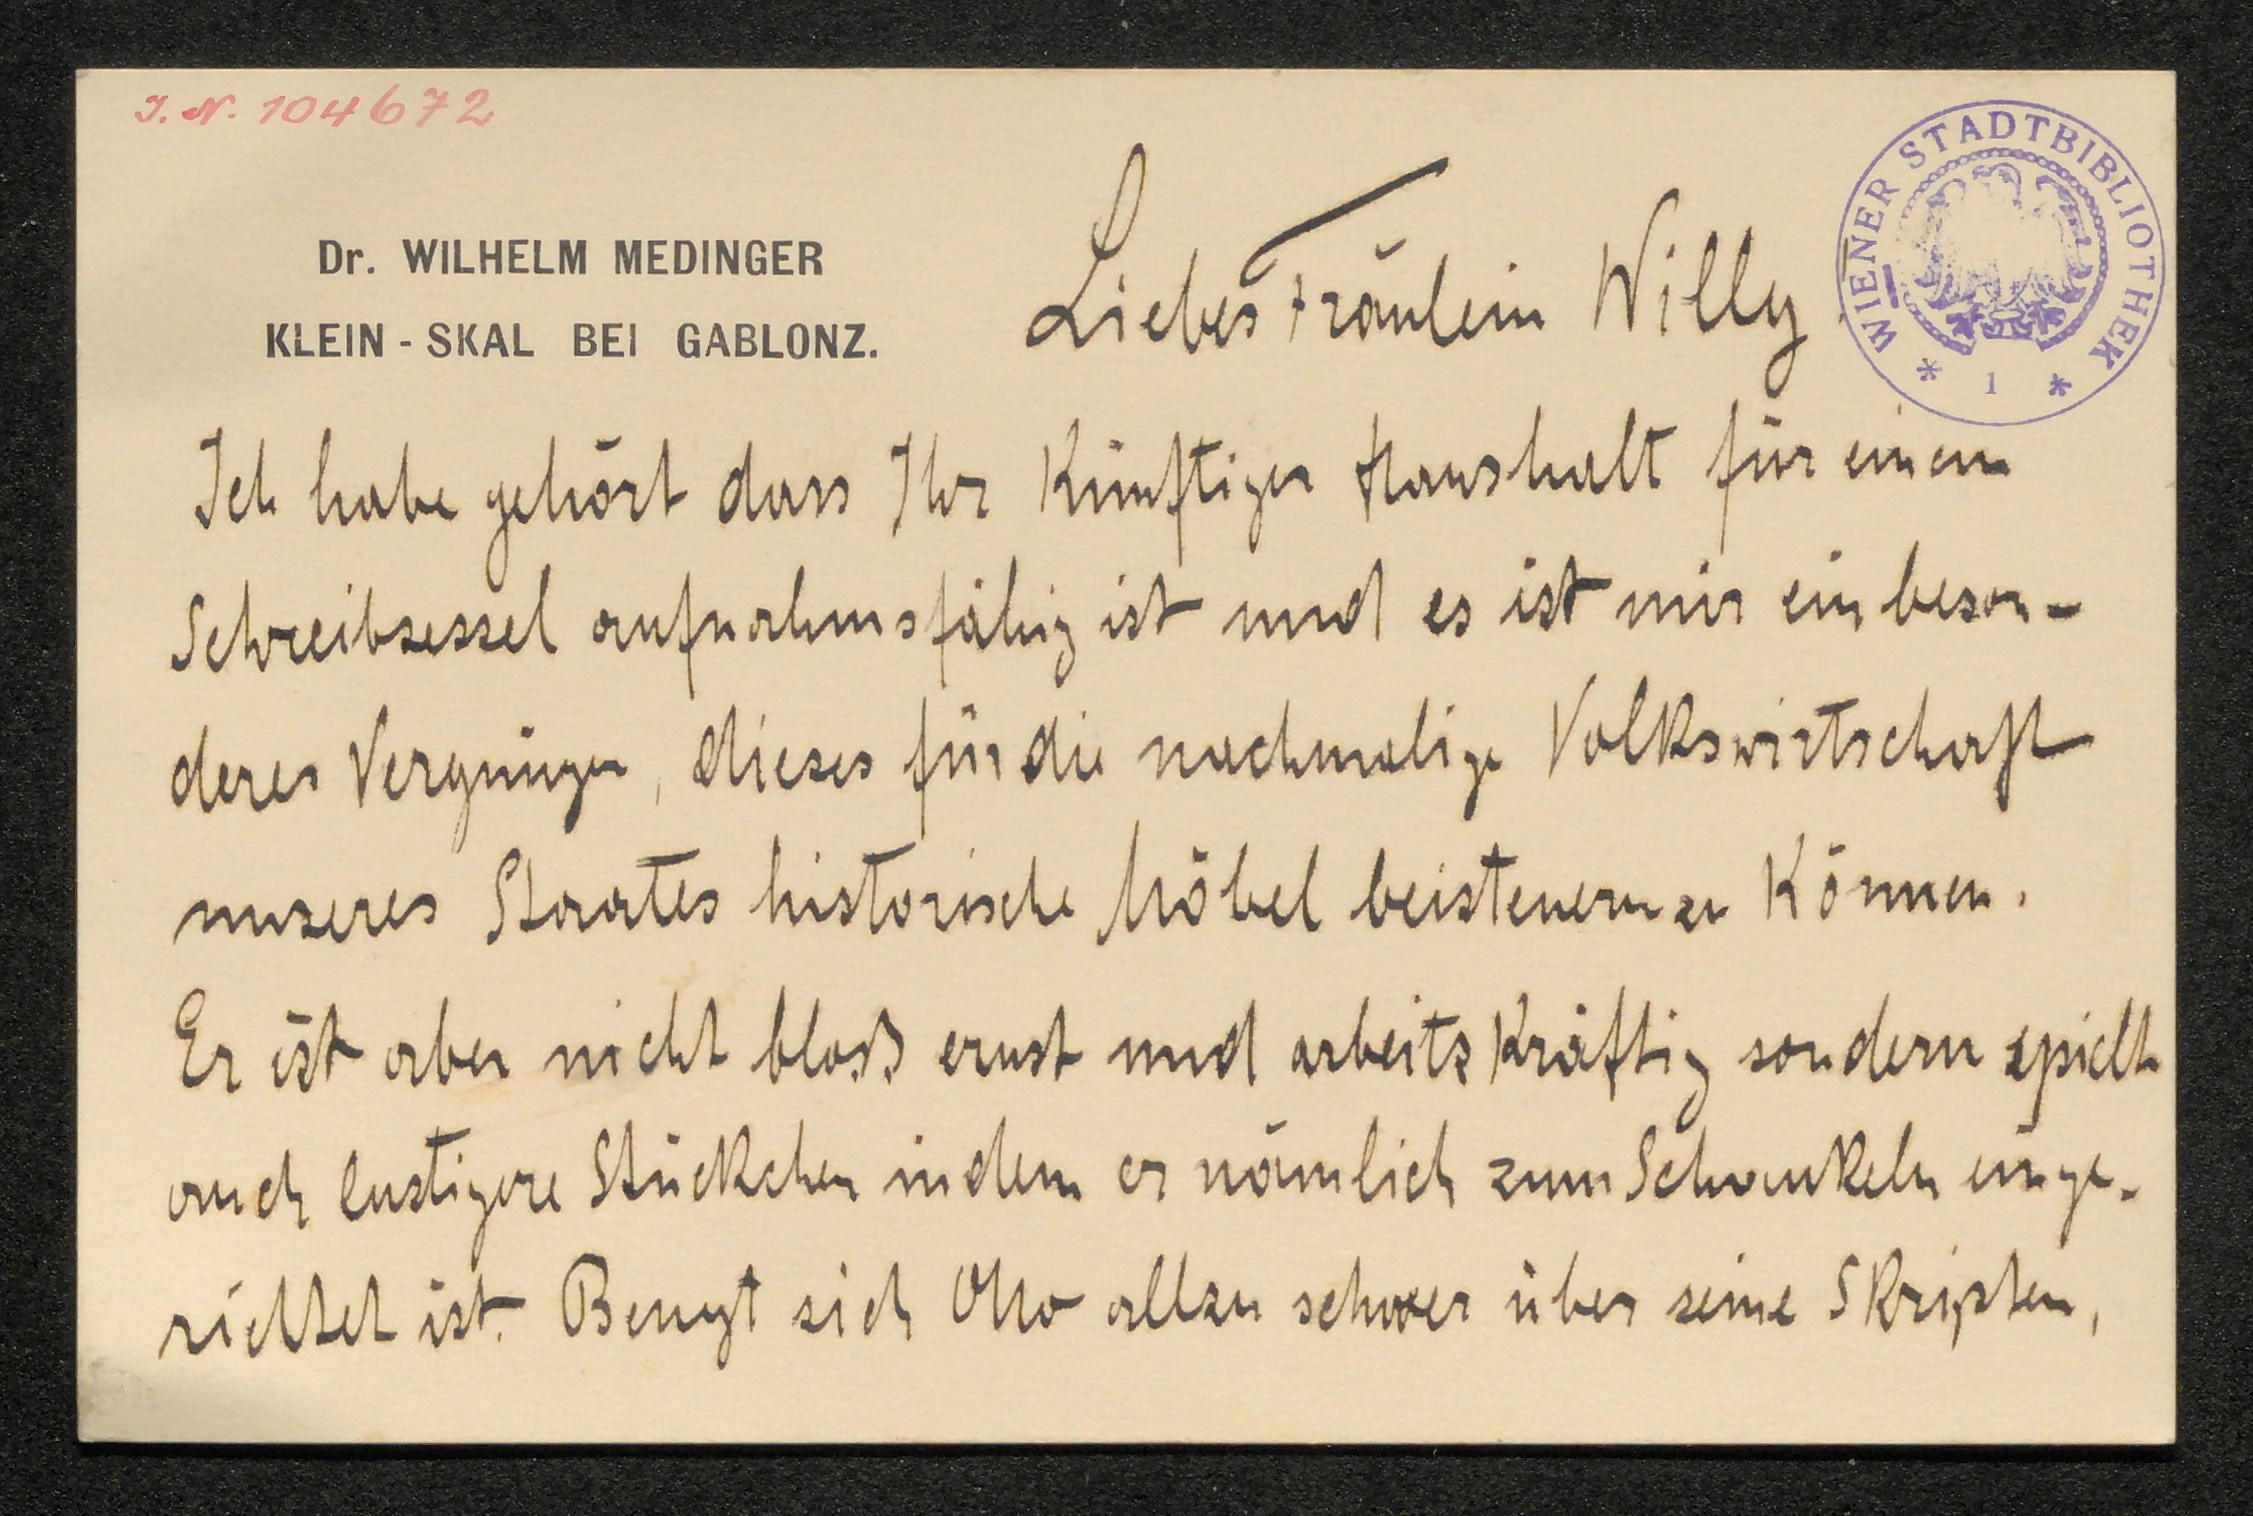 J. N. 104672
WIENER STADTBIBLIOTHEK
* 1 *
Dr. WILHELM MEDINGER
KLEIN-SKAL BEI GABLONZ.
Liebes Fräulein Willy
Ich habe gehört dass Ihr künftiger Haushalt für einen
Schreibsessel aufnahmsfähig ist und es ist mir ein beson-
deres Vergnügen, dieses für die nachmalige Volkswirtschaft
unseres Staates historische Möbel beisteuern zu können.
Er ist aber nicht bloß ernst und arbeitskräftig sondern spielt
auch lustigere Stückchen indem er nämlich zum Schaukeln einge-
richtet ist. Beugt sich Otto allzu schwer über seine Skripten,